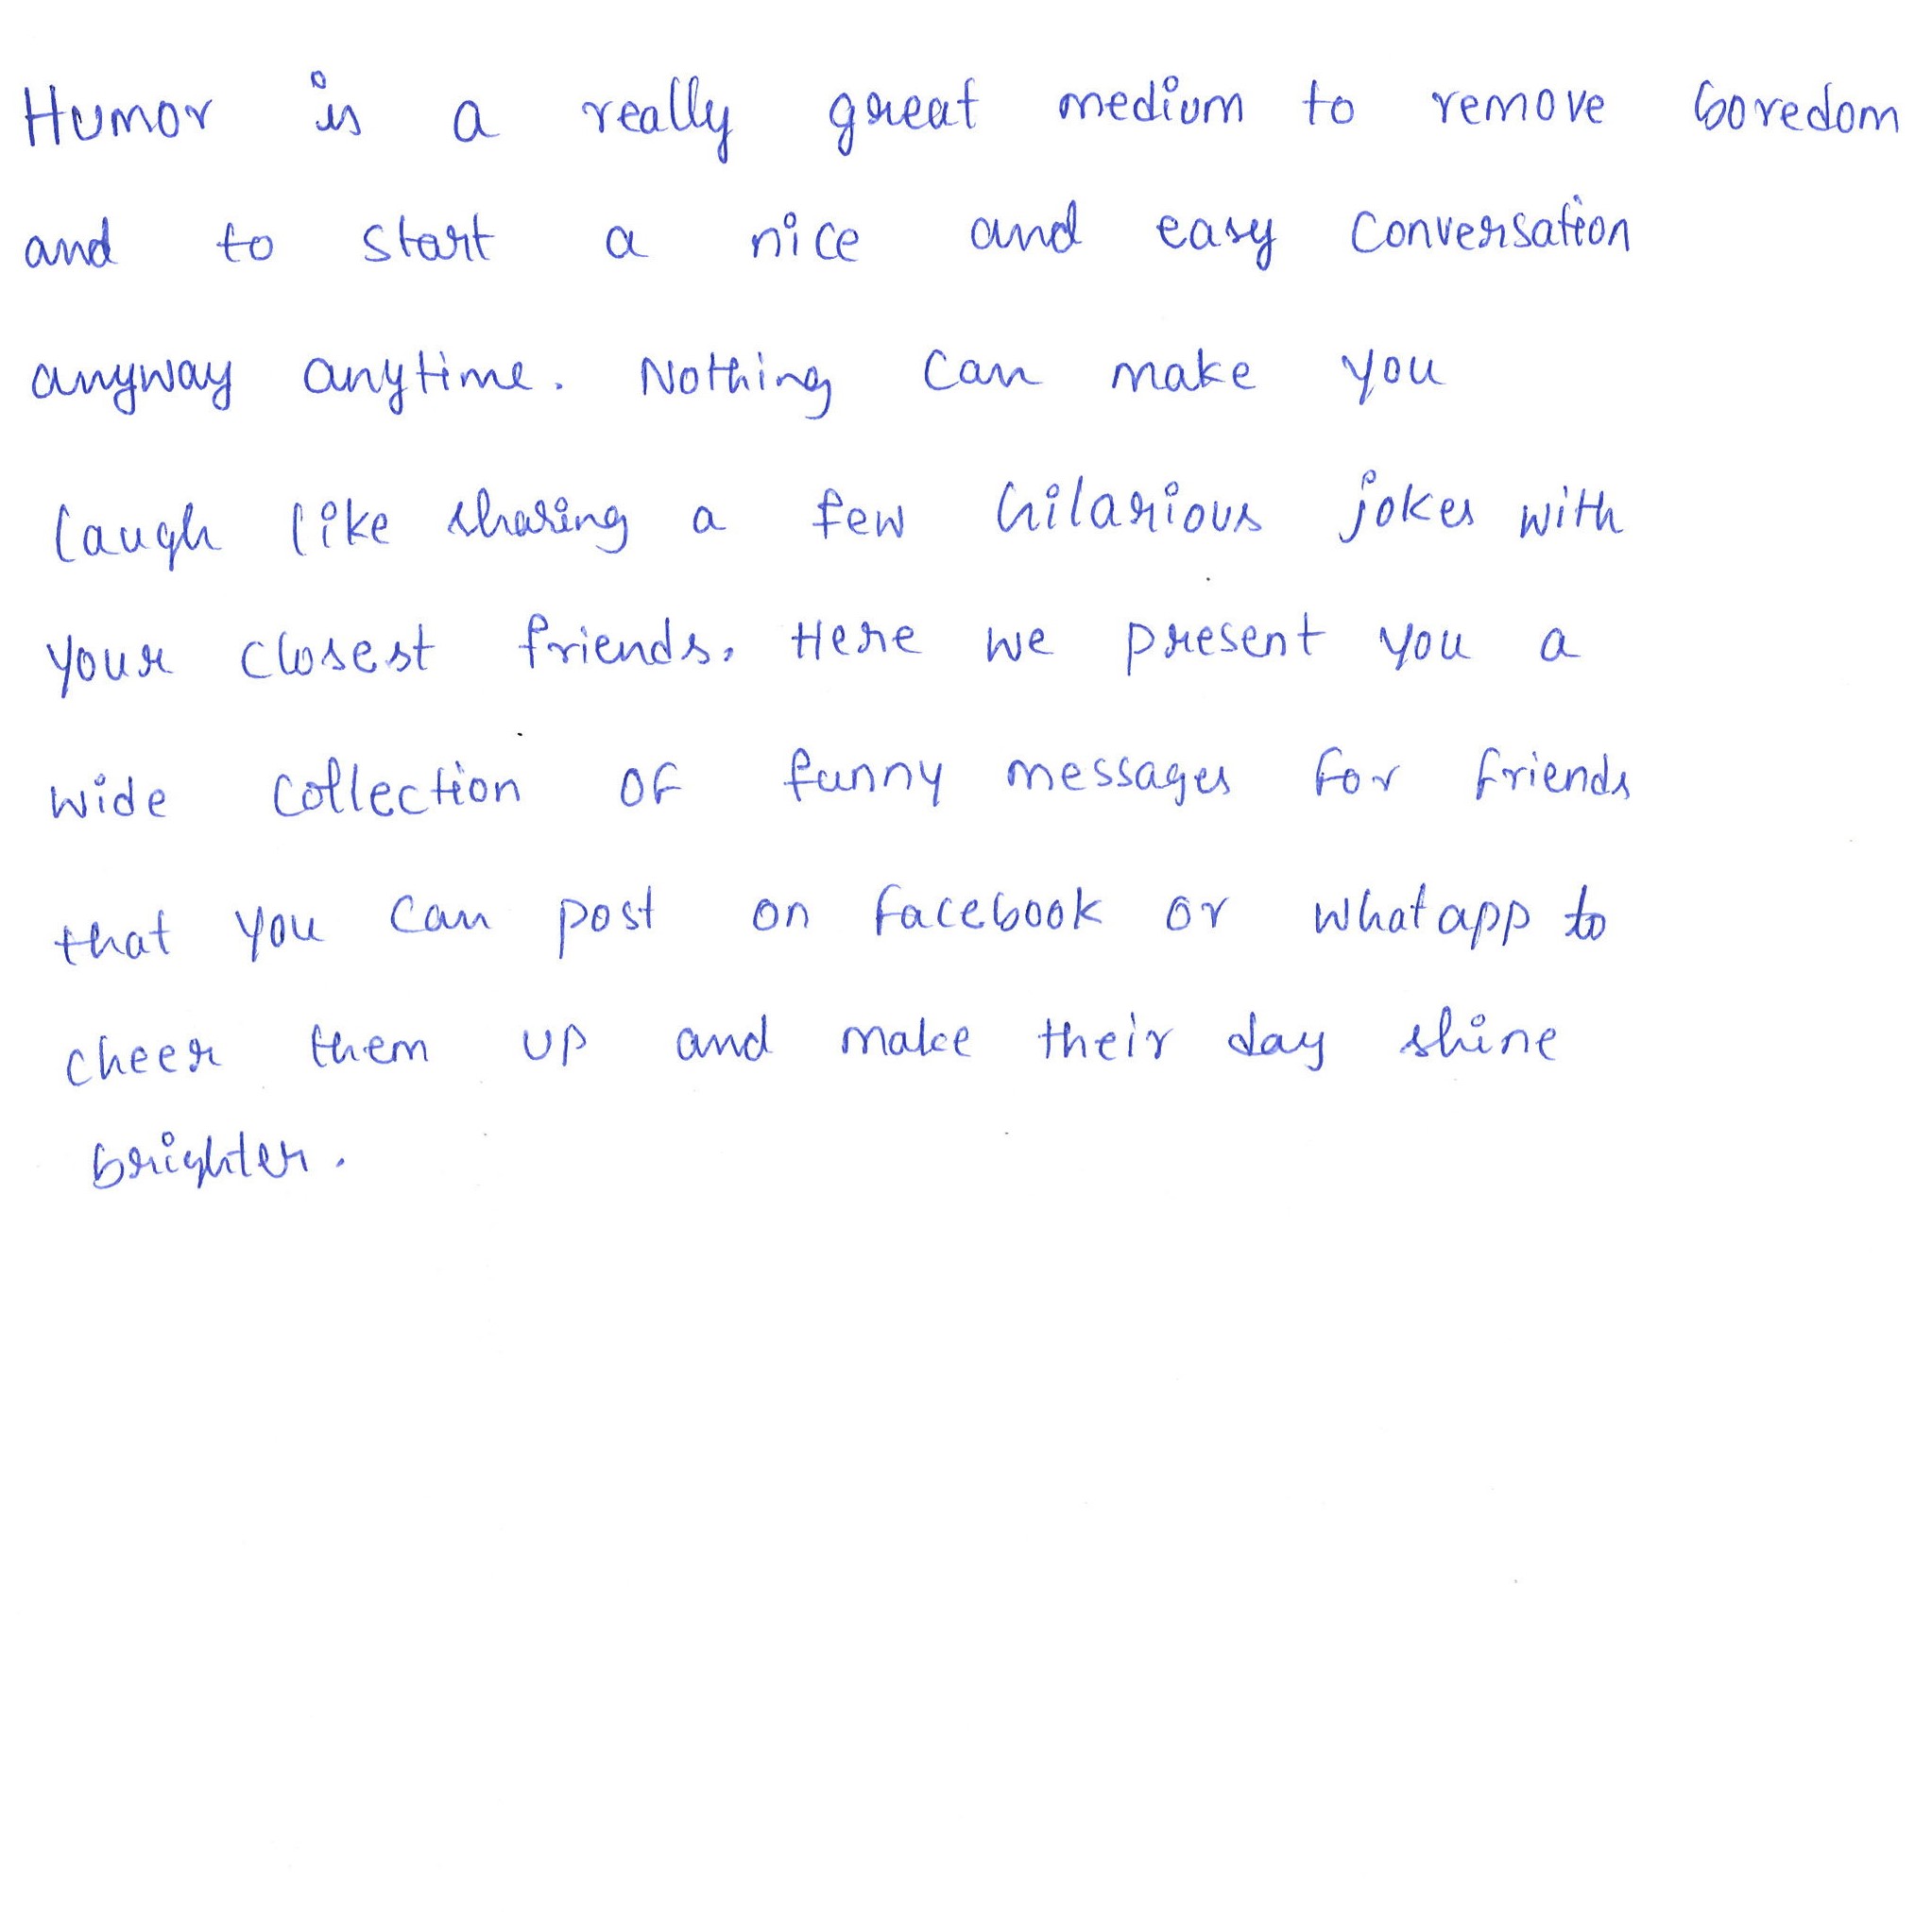 Humor is a really great medium to remove boredom
and to start a nice and easy conversation
anyway anytime. Nothing can make you
laugh like sharing a few hilarious jokes with
your closest friends. Here we present you a
wide collection of funny messages for friends
that you can post on facebook or whatapp to
cheer them up and make their day shine
brighter.